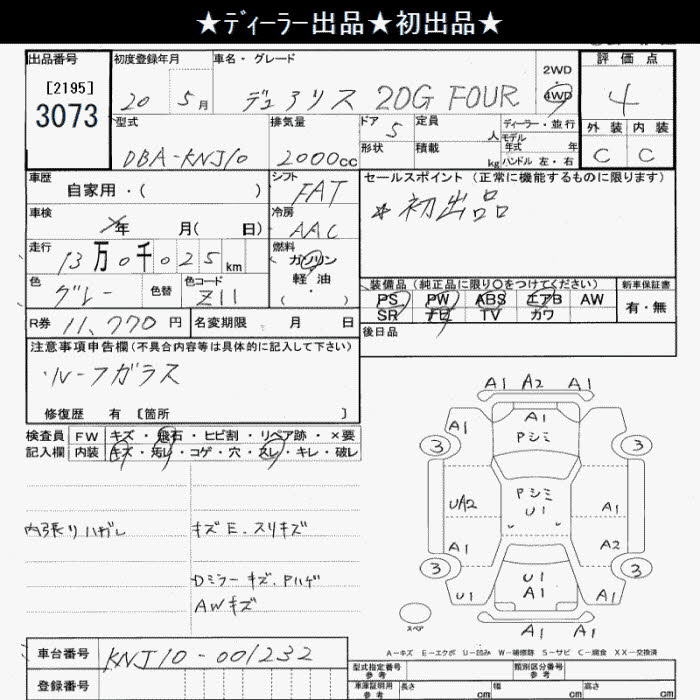 ★ディーラー出品★初出品★
出品番号 初度登録年月 車名・グレード 評価点
[2195] 3073
20 5月 デュアリス 20G FOUR 2WD 4WD 4
型式 排気量 ドア 5 定員 人 ディーラー・並行 外装 内装
DBA-KNJ10 2000cc 形状 積載 kg モデル年式 年 ハンドル 左・右 C C
車歴 自家用・( ) シフト FAT セールスポイント (正常に機能するものに限ります)
車検 年 月( 日) 冷房 AAC *初出品
走行 13万0千025km 燃料 ガソリン 軽油 ( ・ )
色 グレー 色替 色コード Z11 装備品(純正品に限り〇をつけてください) 新車保証書
PS PW ABS エアB AW 有・無
SR ナビ TV カワ
R券 11,770円 名変期限 月 日 後日品
注意事項申告欄(不具合内容等は具体的に記入して下さい)
・ルーフガラス
修復歴 有 [箇所 ]
検査員 FW キズ・飛石・ヒビ割・リペア跡・×要
記入欄 内装 キズ・汚レ・コゲ・穴・スレ・キレ・破レ
内張りハガレ キズE.スリキズ
Dミラーキズ.Pハゲ
AWキズ
A1 A2 A1
A1 A1 A1
Pシミ
3 3
Pシミ
UA2 U1 A1
A1 A2
3 U1 3
U1 A1 A1
A1 A1
スペア
A-キズ E-エクボ U-凹み W-補修跡 S-サビ C-腐食 XX-交換済
車台番号 KNJ10-001232
型式指定番号 参考 類別区分番号 参考
登録番号 車庫証明用 参考 長さ cm 幅 cm 高さ cm